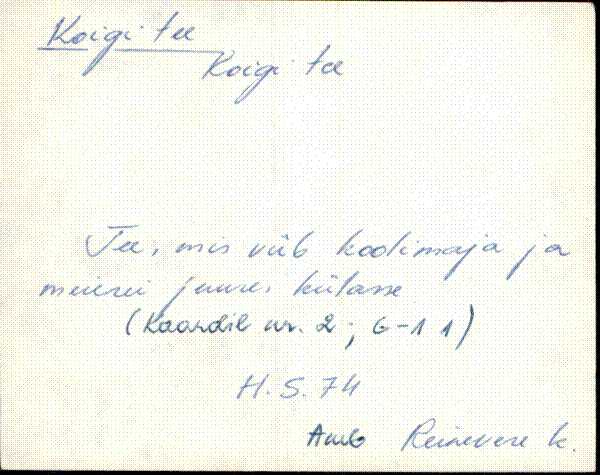 Koigi tee
Koigi tee
Tee, mis viib koolimaja ja
meierei juure, külasse
(Kaardil nr. 2; G-11)
H. S. 74
Amb Reinevere k.